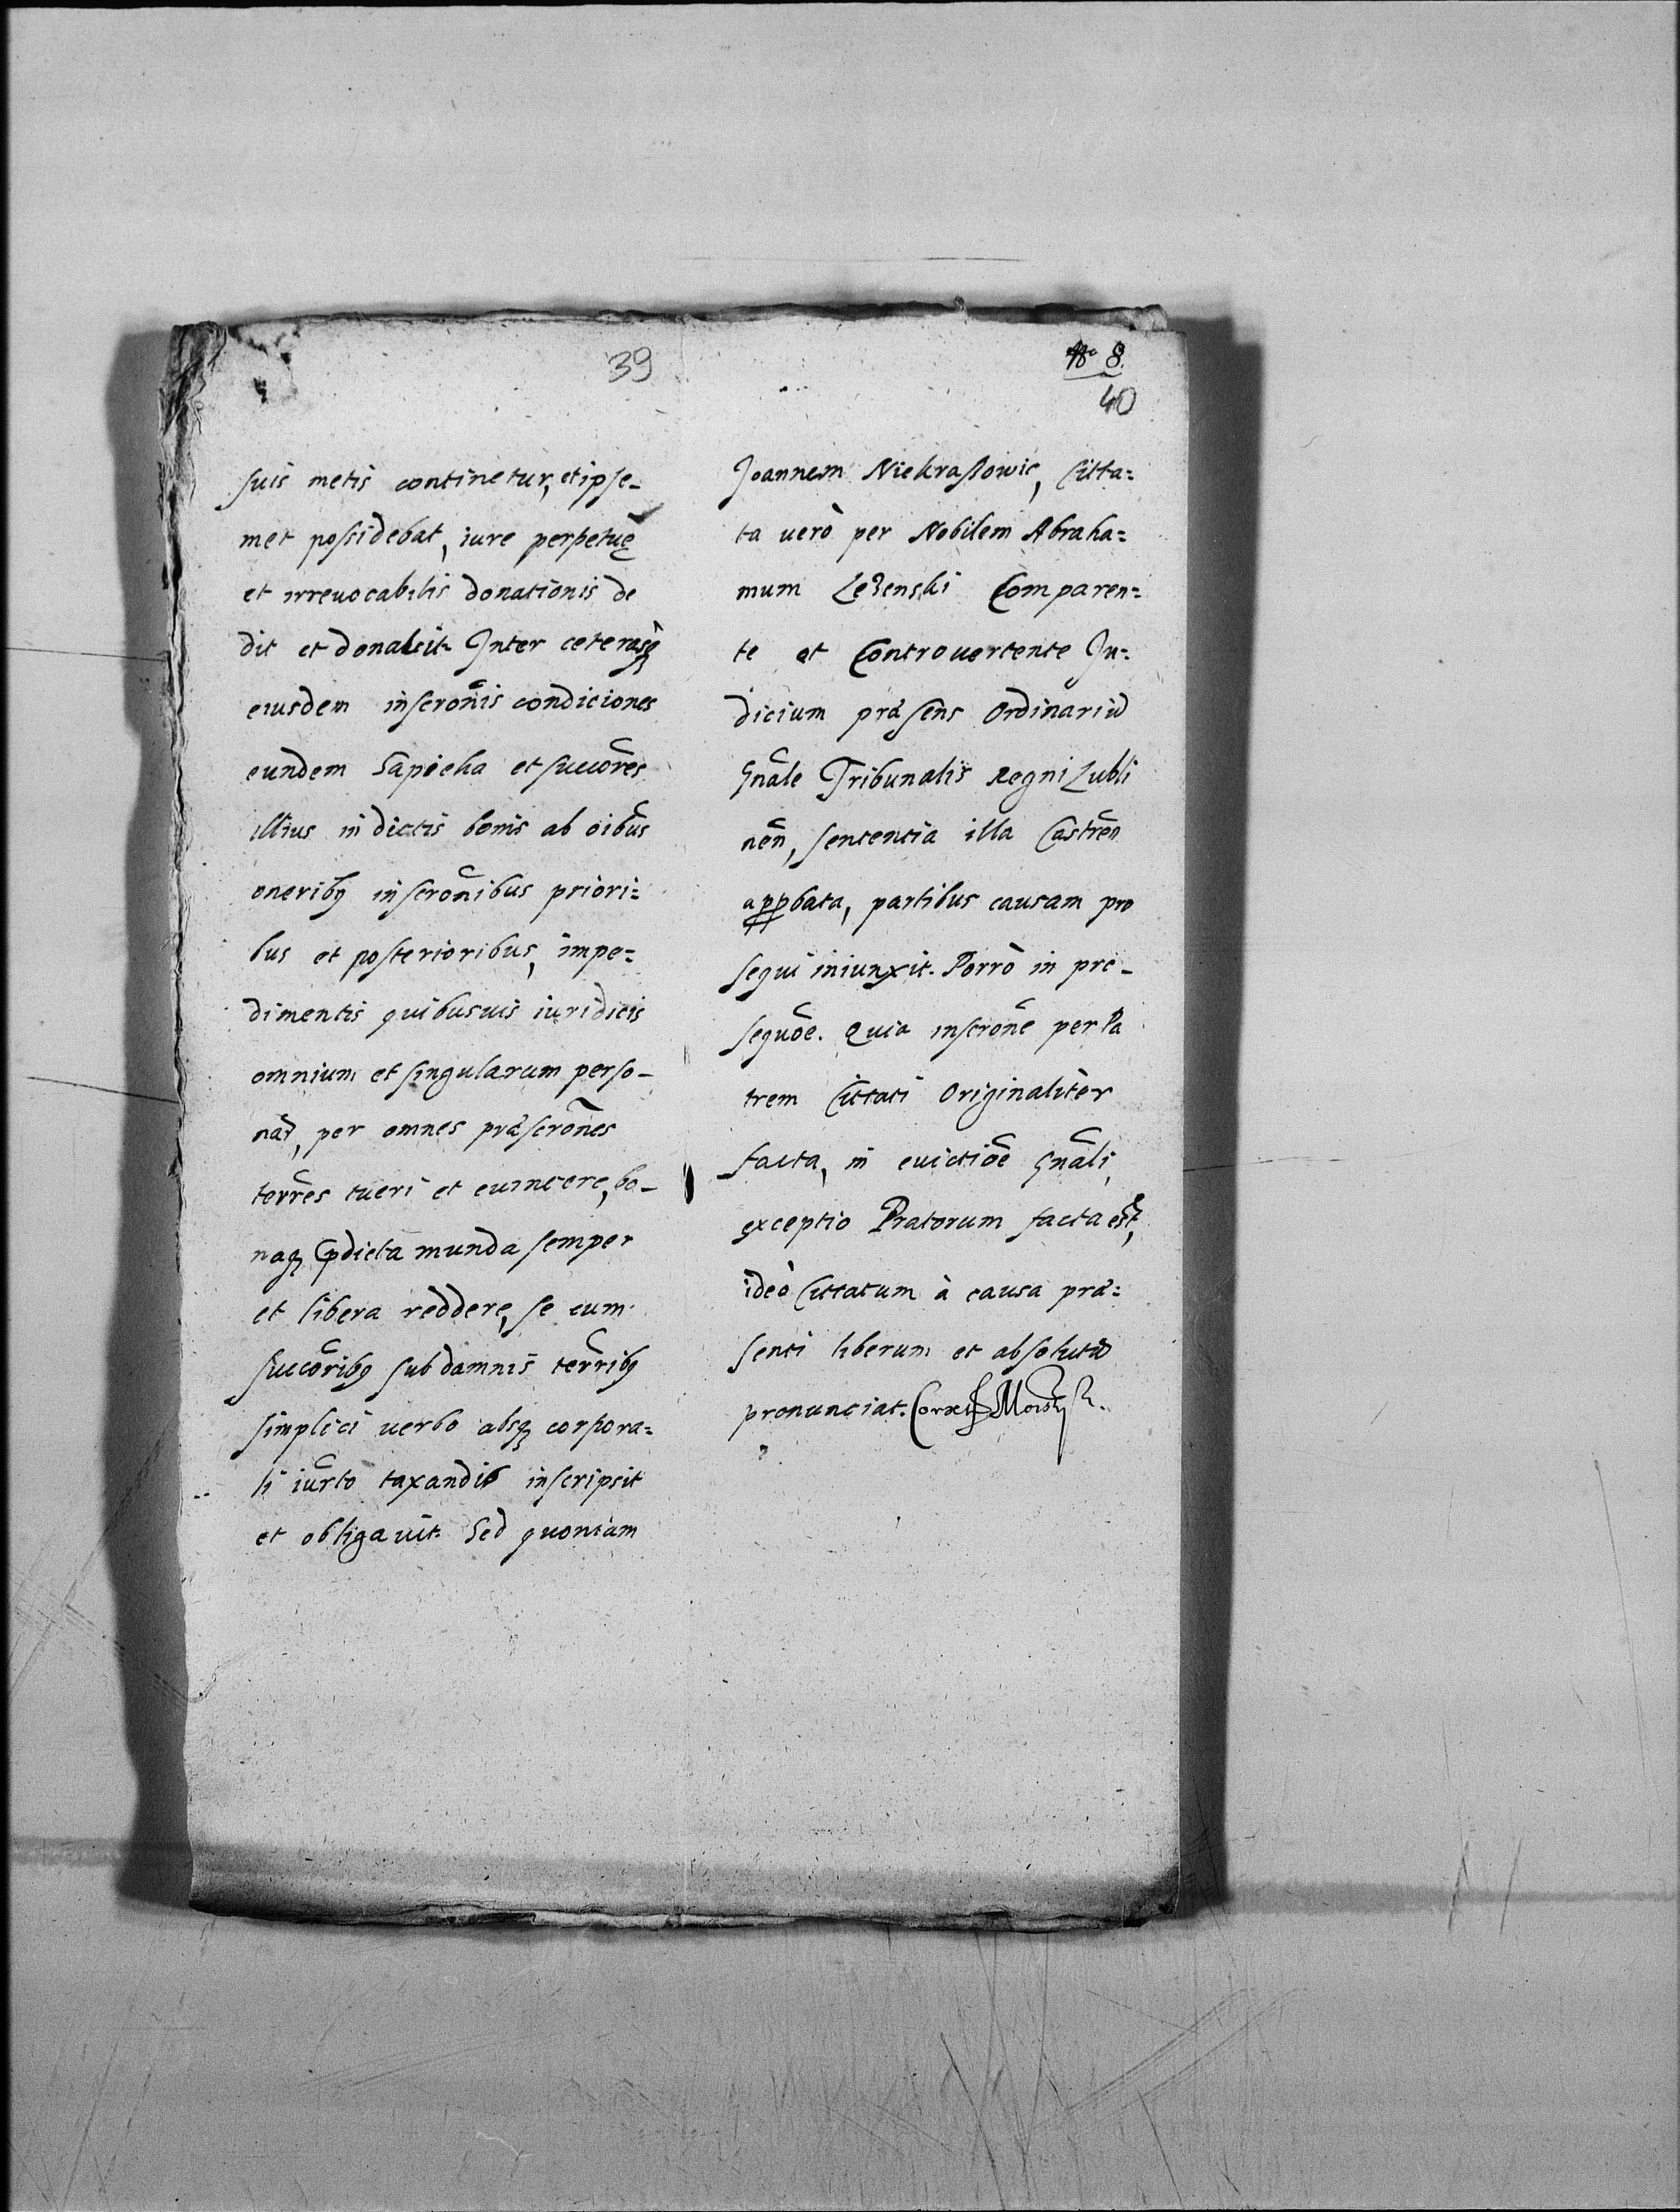 39
suis metis continetur, et ipse-
met possidebat, iure perpetuę
et irreuocabilis donationis de
dit et donauit. Inter ceterasq̃
eiusdem inscrõnis condiciones
eundem Sapieha et succõres
illius in dictis bonis ab õibus
oneribꝰ inscrõnibus priori=
bus et posterioribus, impe=
dimentis quibusuis iuridicis
omnium et singularum perso-
nar̃, per omnes præscrõnes
terr̃es tueri et euincere, bo-
naqꝫ p̃dicta munda semper
et libera reddere, se cum
succõribꝰ sub damnis terr̃ibꝰ
simplici uerbo absqꝫ corpora=
li iur̃to taxandis inscripsit
et obligauit. Sed quoniam
No 8.
40
Joannem Niekraßowic, Citta=
ta uerò per Nobilem Abraha=
mum Lezenski Comparen=
te et Controuertente Ju=
dicium præsens Ordinariũ
Gñale Tribunalis Regni Lubli
neñ, sentencia illa Castreñ
appbata, partibus causam pro
sequi iniunxit. Porrò in pro-
sequõe. Quia inscrõne per Pa
trem Cittati Originaliter
facta, in euictiõe gñali,
exceptio Pratorum facta est,
ideò Cittatum à causa præ=
senti liberum et absolutũ
pronunciat.